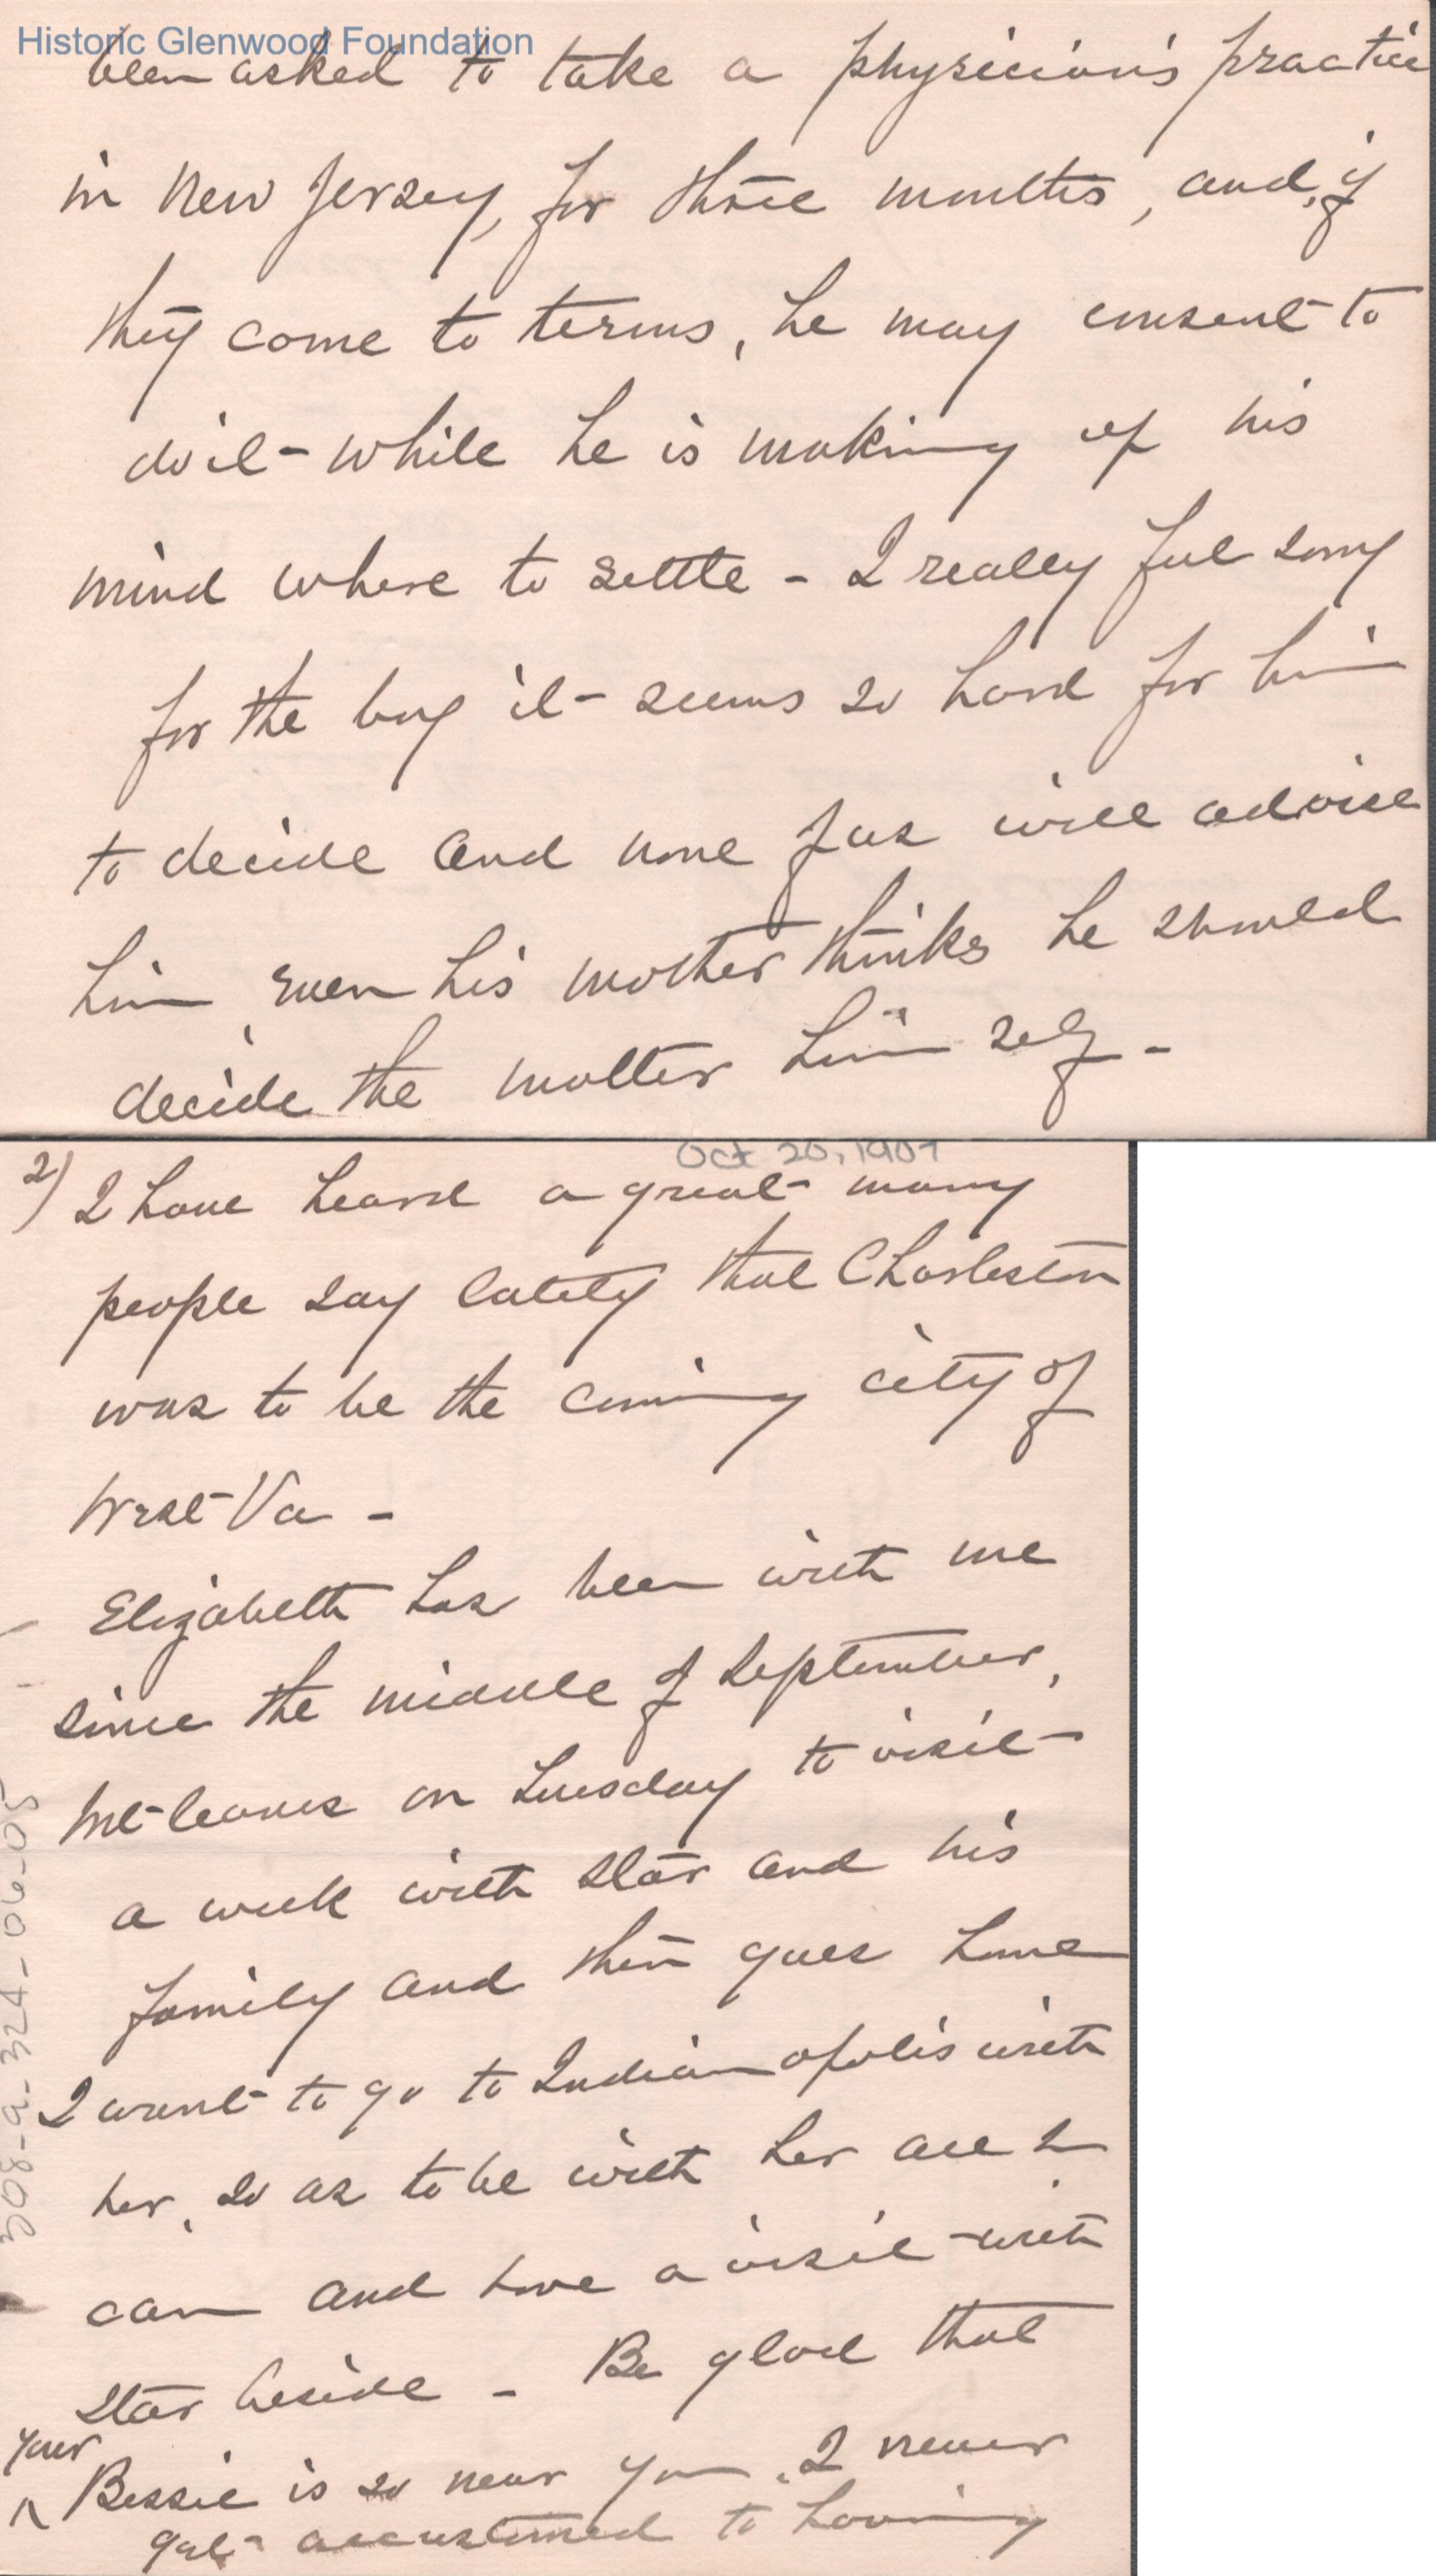 Historic Glenwood Foundation
been asked to take a physician's practice
in New Jersey, for three months, and, if
they come to terms, he may consent to
do it - while he is making up his
mind where to settle - I really feel sorry
for the boy it - seems so hard for him
to decide and none of us will advise
him, even his mother thinks he should
decide the matter him self -
Oct 20, 1907
2) I have heard a great many
people say lately that Charleston
was to be the coming city of
West Va -
Elizabeth has been with me
since the middle of September,
but leaves on Tuesday to visit
a week with Star and his
family and then goes home
I want to go to Indianapolis with
her, so as to be with her all I
can and have a visit with
Star beside - Be glad that
your
^ Bessie is so near you. I never
get accustomed to having
308-a-324-06-05